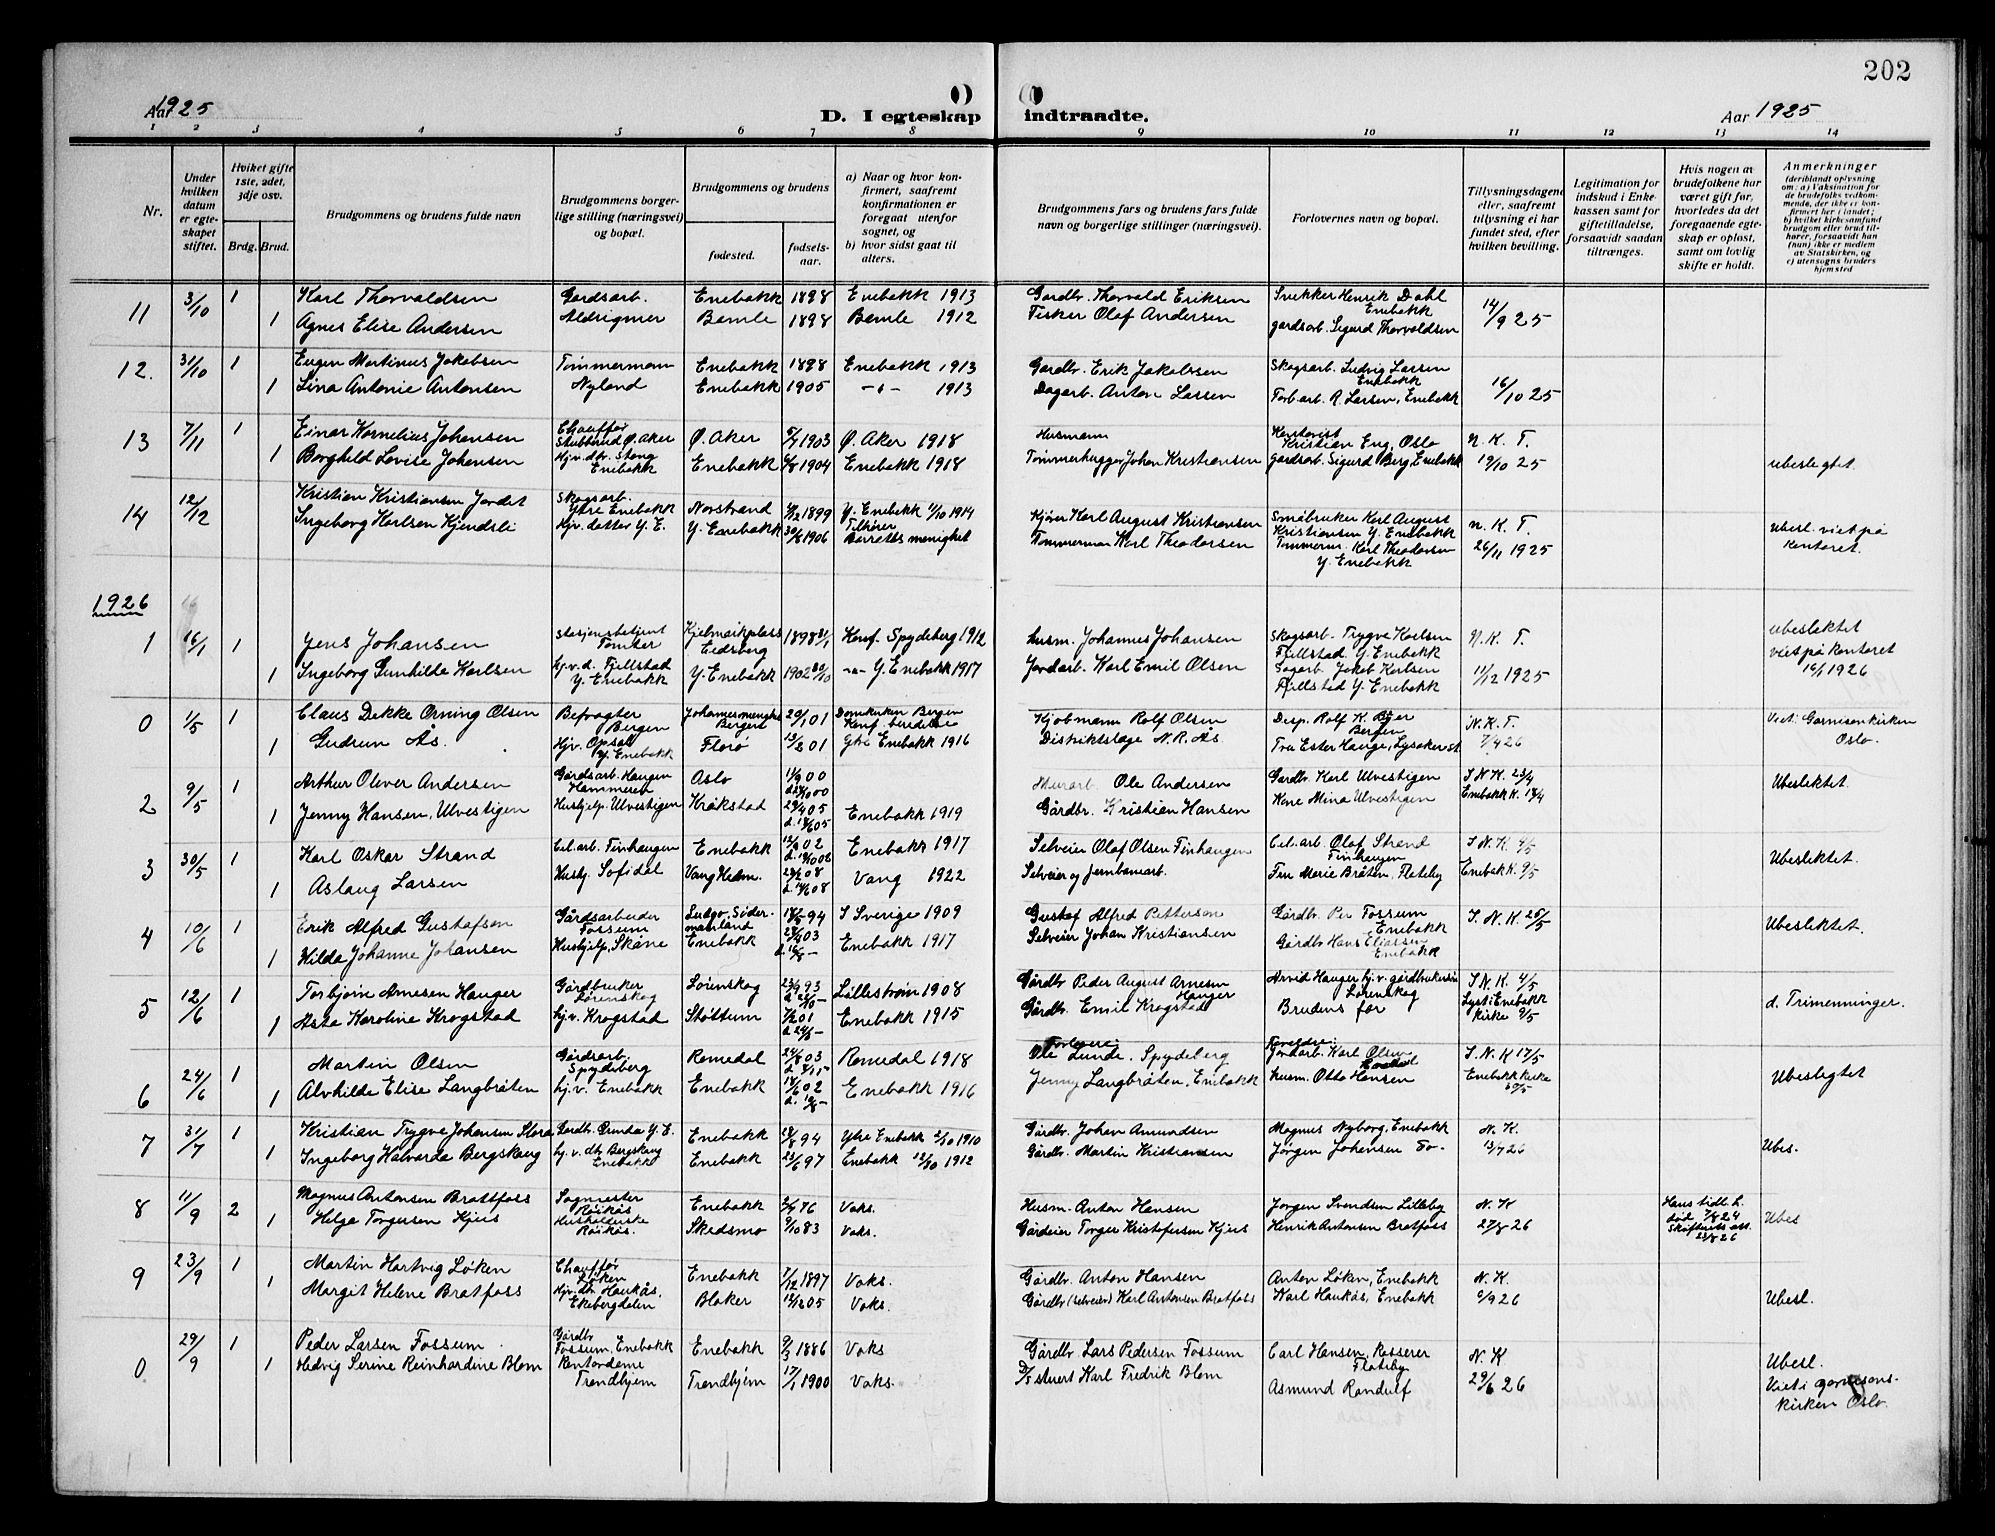 202
Aar 1925
D. I egteskap
indtraadte.
Aar 1925
1 2 3 4 5 6 7 8 9 10 11 12 13 14
Nr.
Under hvilken datum er egteskapet stiftet.
Hvilket gifte 1ste, 2det, 3dje osv.
Brdg. Brud.
Brudgommens og brudens fulde navn
Brudgommens borgerlige stilling (næringsvei) og bopæl.
Brudgommens og brudens
fødested.
fødselsaar.
a) Naar og hvor konfirmert, saafremt konfirmationen er foregaat utenfor sognet, og
b) hvor sidst gaat til alters.
Brudgommens fars og brudens fars fulde navn og borgerlige stillinger (næringsvei).
Forlovernes navn og bopæl.
Tillysningsdagene eller, saafremt tillysning ei har fundet sted, efter hvilken bevilling.
Legitimation for indskud i Enkekassen samt for giftetilladelse, forsaavidt saadan tiltrænges.
Hvis nogen av brudefolkene har været gift før, hvorledes da det foregaaende egteskap er opløst, samt om lovlig skifte er holdt.
Anmerkninger
(deriblandt oplysning om: a) Vaksination for de brudefolks vedkommende, der ikke er konfirmert her i landet; b) hvilket kirkesamfund brudgom eller brud tilhører, forsaavidt han (hun) ikke er medlem av Statskirken, og c) utensogns bruders hjemsted
11 3/10 1 Karl Thorvaldsen Gardsarb. Enebakk 1898 Enebakk 1913 Gardbr. Thorvald Eriksen Snekker Henrik Dahl Enebakk 14/9 25
1 Agnes Elise Andersen Bamle 1898 Bamle 1912 Fisker Olaf Andersen gardsarb. Sigurd Thorvaldsen
12. 31/10 1 Eugen Martinus Jakobsen Tømmermann Enebakk 1898 Enebakk 1913 Gardbr. Erik Jakobsen Skogsarb. Ludvig Larsen Enebakk 16/10 25
1 Lina Antonie Antonsen Nyland Enebakk 1905 -"- 1913 Dagarb. Anton Larsen R. Larsen, Enebakk
13 7/11 1 Einar Kornelius Johansen Chauffør Stubberud Ø. Aker Ø. Aker 1903 Ø. Aker 1918 Husmann Kontorist Kristian Eng, Oslo N. K. T.
1 Borghild Lovise Johansen Hjv. dtr. Stang Enebakk Enebakk 1904 Enebakk 1918 Tømmerhugger Johan Kristiansen gardsarb. Sigurd Berg Enebakk 19/10 25 ubeslegtet.
14 12/12 Kristian Kristiansen Jordet Skogsarb. Ytre Enebakk Norstrand 1899 Y. Enebakk 1/10 1914 Kjører Karl August Kristiansen Småbruker Karl August Kristiansen Y. Enebakk N. K. T. Ubesl. viet på kontoret.
Ingeborg Karlsen Kjendsli Hjv. datter Y. E. Y. Enebakk 1906 Tilhører Barratts menighet Tømmerman Karl Theodorsen Tømmerm. Karl Theodorsen Y. Enebakk 26/11 1925
1926
1 16/1 1 Jens Johansen Stasjonsbetjent Tomter Eidsberg 1898 Konf. Spydeberg 1912 husm. Johannes Johansen Skogsarb. Trygve Karlsen Fjellstad Y. Enebakk N. K. T. ubeslektet viet på kontoret 16/1 1926
1 Ingeborg Gunhilde Karlsen hj.v.d. Fjellstad Y. Enebakk Y. Enebakk 1902 Y. Enebakk 1917 Jordarb. Karl Emil Olsen Sagarb. Jakob Karlsen Fjellstad Y. Enebakk 11/12 1925
0 1/5 1 Claus Dekke Orning Olsen Befragter Bergen Bergen 29/1 01 Domkirken Bergen Kjøbmann Rolf Olsen Disp. Rolf K. Bergen N. K. T. Viet i Garnisonkirken Oslo.
1 Gudrun Ås. Hjv. Opsal Y. Enebakk Florø 13/2 01 Ytre Enebakk 1916 Distriktslæge N. R. Ås Fru Ester Hauge, Lysaker st. 7/4 26
2 9/5 1 Arthur Oliver Andersen Gårdsarb. Haugen Hammeren Oslo 00 Murarb. Ole Andersen Gardbr. Karl Ulvestigen I N. K. 23/4 Ubeslektet
1 Jenny Hansen, Ulvestigen Hushjelp. Ulvestigen Kråkstad 29/4 05 Enebakk 1919 Gårdbr. Kristian Hansen Kone Mina Ulvestigen Enebakk K. 18/4
3 30/5 1 Karl Oskar Strand Finhaugen Enebakk 02 Enebakk 1917 Selveier Olaf Olsen Finhaugen Olaf Strand Finhaugen I. N. K. 4/5 Ubeslektet.
1 Aslaug Larsen Hushj. Sofidal Vang Hedm. 08 Vang 1922 Selveier og jernbanearb. Fru Marie Bråten, Flateby Enebakk K. 9/5
4 10/6 1 Erik Alfred Gustafson Gårdsarbeider Fossum Ludgo, Södermanland 94 I Sverige 1909 Gustaf Alfred Petterson Gårdbr. Per Fossum Enebakk I. N. K. 25/5 Ubeslektet.
1 Hilda Johanne Johansen Hushjelp, Skåne Enebakk 03 Enebakk 1917 Selveier Johan Kristiansen Gårdbr Hans Eliassen Enebakk
5 12/6 1 Torbjørn Arnesen Hauger Gårdbruker Lørenskog Lørenskog 93 Lillestrøm 1908 Gårdbr. Peder August Arnesen Hauger Arvid Hauger, hj.v. gårdbrukersøn Lørenskog I N. K. 4/5 d. Trimenninger.
1 Asta Karoline Krogstad hj.v. Krogstad Støttum 01 Enebakk 1915 Gårdbr. Emil Krogstad Brudens far Lyst i Enebakk kirke 9/5
6 24/6 1 Martin Olsen Gårdsarb. Spydeberg Romedal 03 Romedal 1918 Ole Lunde, Spydeberg Jordarb. Karl Olsen I. N. K 17/5 Ubeslegtet
1 Alvhilde Elise Langbråten hj.v. Enebakk Enebakk 02 Enebakk 1916 Jenny Langbråten, Enebakk husm. Otto Hansen Enebakk kirke
7 31/7 1 Kristian Trygve Johansen Stora Gardbr. Grinda Y. E. Enebakk 94 Ytre Enebakk 2/10 1910 Gårdbr. Johan Amundsen Magnus Nyborg, Enebakk N. K. Ubes.
1 Ingeborg Halvarda Bergskaug hj. v. dtr Bergskaug Enebakk Enebakk 23/6 97 Enebakk 1912 Gårdbr. Martin Kristiansen Jørgen Johansen Do- 13/7 26
8 11/9 2 Magnus Antonsen Bratfoss Sagmester Råkås Enebakk 76 Voks. Husm. Anton Hansen Jørgen Svendsen Lilleby N. K Hans tidl. h. død 24 Skifterets att. 23/8 26 Ubes
1 Helga Torgersen Kjus Husholderske Råkås. Skedsmo 9/10 83 Voks. Gårdeier Torger Kristofersen Kjus Henrik Antonsen Bratfoss 27/8 26
9 23/9 1 Martin Hartvig Løken Chauffør Løken Enebakk 7/12 1897 Voks. Gårdbr. Anton Hansen Anton Løken, Enebakk N. K.
1 Margit Helene Bratfoss Hjv. dtr. Haukås, Ekebergdalen Blaker 05 Voks. Gårdbr (selveier) Karl Antonsen Bratfoss Karl Haukås, Enebakk 6/9 26 Ubesl.
0 29/9 1 Peder Larsen Fossum Gårdbr Fossum, Enebakk Enebakk 9/3 1886 Voks Gårdbr Lars Pedersen Fossum Carl Hansen, Kasserer Flateby N. K Ubesl.
1 Hedvig Serine Reinhardine Blom Kontordame Trondhjem Trondhjem 17/1 1900 Voks. D/S stuert Karl Fredrik Blom Asmund Randulf 29/6 26 Viet i garnisonskirken Oslo.